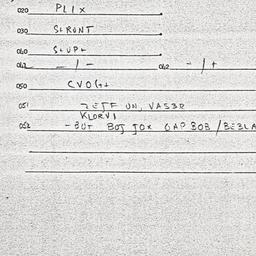 020 PLIX
030 SLRUNT
040 SLUPL
041 - / - 042 - / +
050 CVO
051 ZETF UN, VASBR
KLORVI
052 - BUT BOJ JOX GAP BOB /